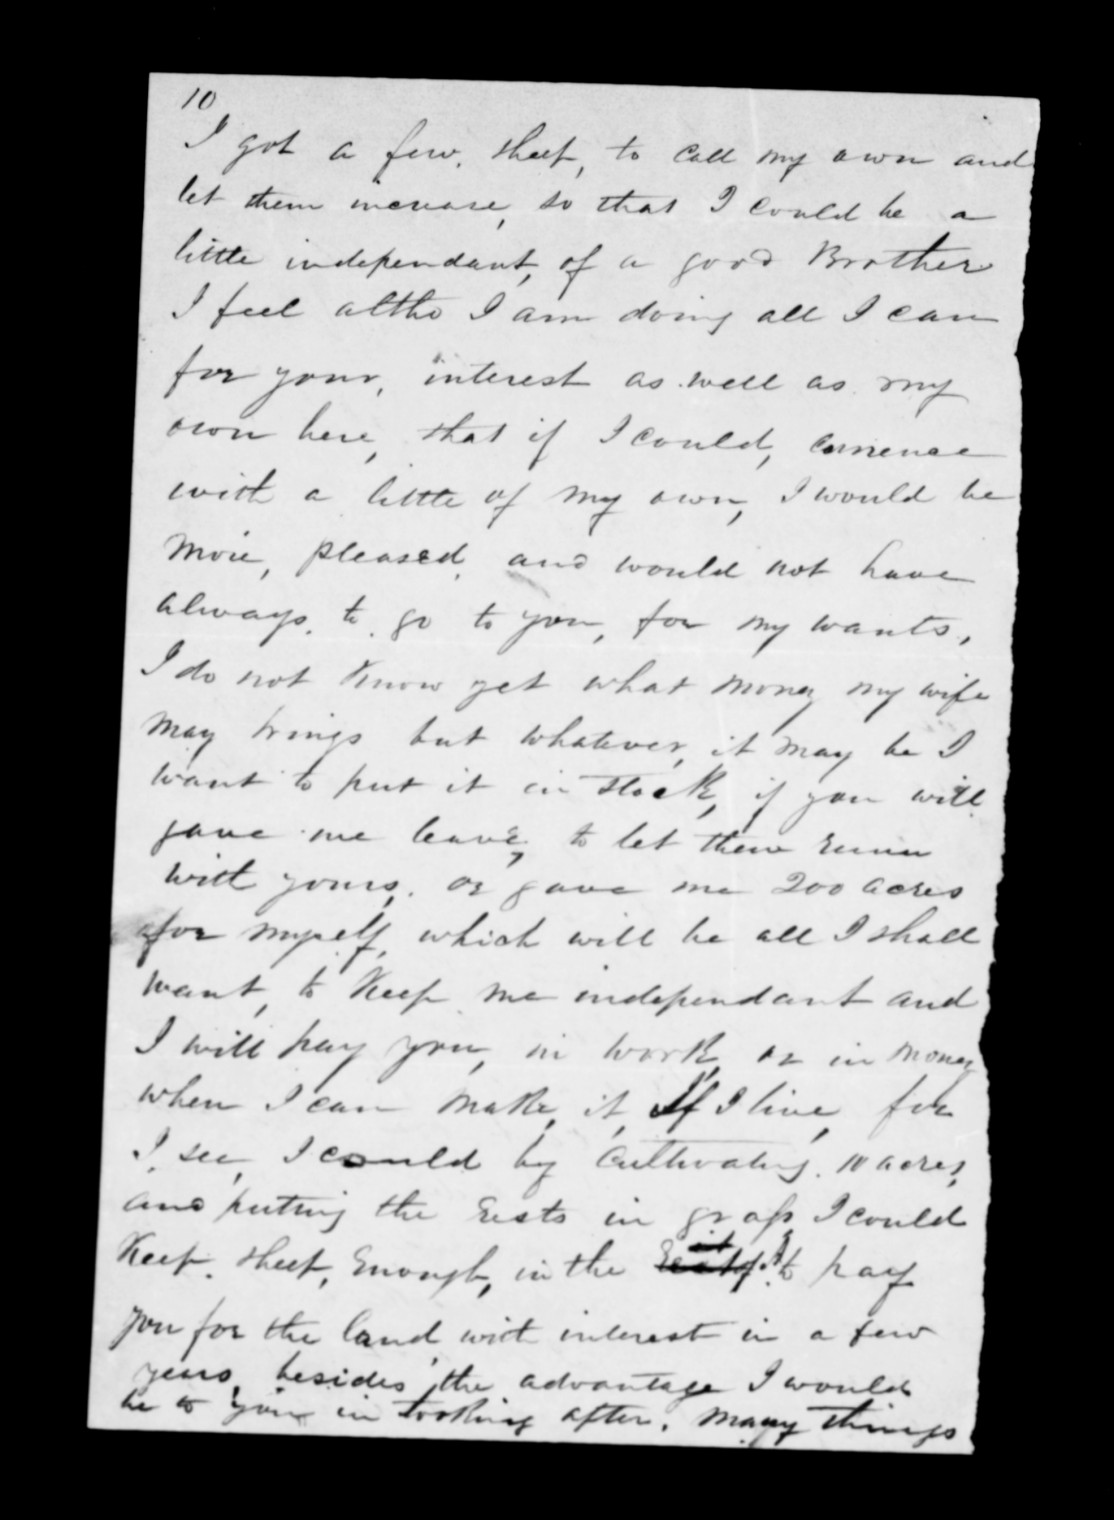 10
I got a few, sheep, to call my own and
let them increase, so that I could be a
little independant, of a good Brother
I feel altho I am doing all I can
for your, interest as well as my
own here, that if I could, comence
with a little of my own, I would be
more, pleased, and would not have
always, to go to you, for my wants,
I do not Know yet what money my wife
may brings but whatever, it may be I
want to put it in stock, if you will
gave me leave, to let them runn
with yours, or gave me 200 acres
for myself, which will be all I shall
want, to Keep me independant and
I will pay you, in work, or in money
when I can make, it, If I live, for
I, see, I could by cultivating, 10 acres,
and puting the rests in grass, I could
Keep, sheep, Enough, in the to pay
you for the land, with interest in a few
years, besides, the advantage I would
be to you in looking after, many things